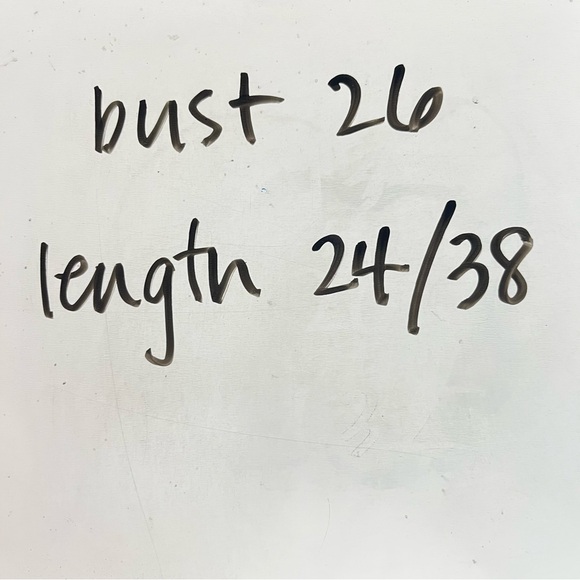 bust 26
length 24/38